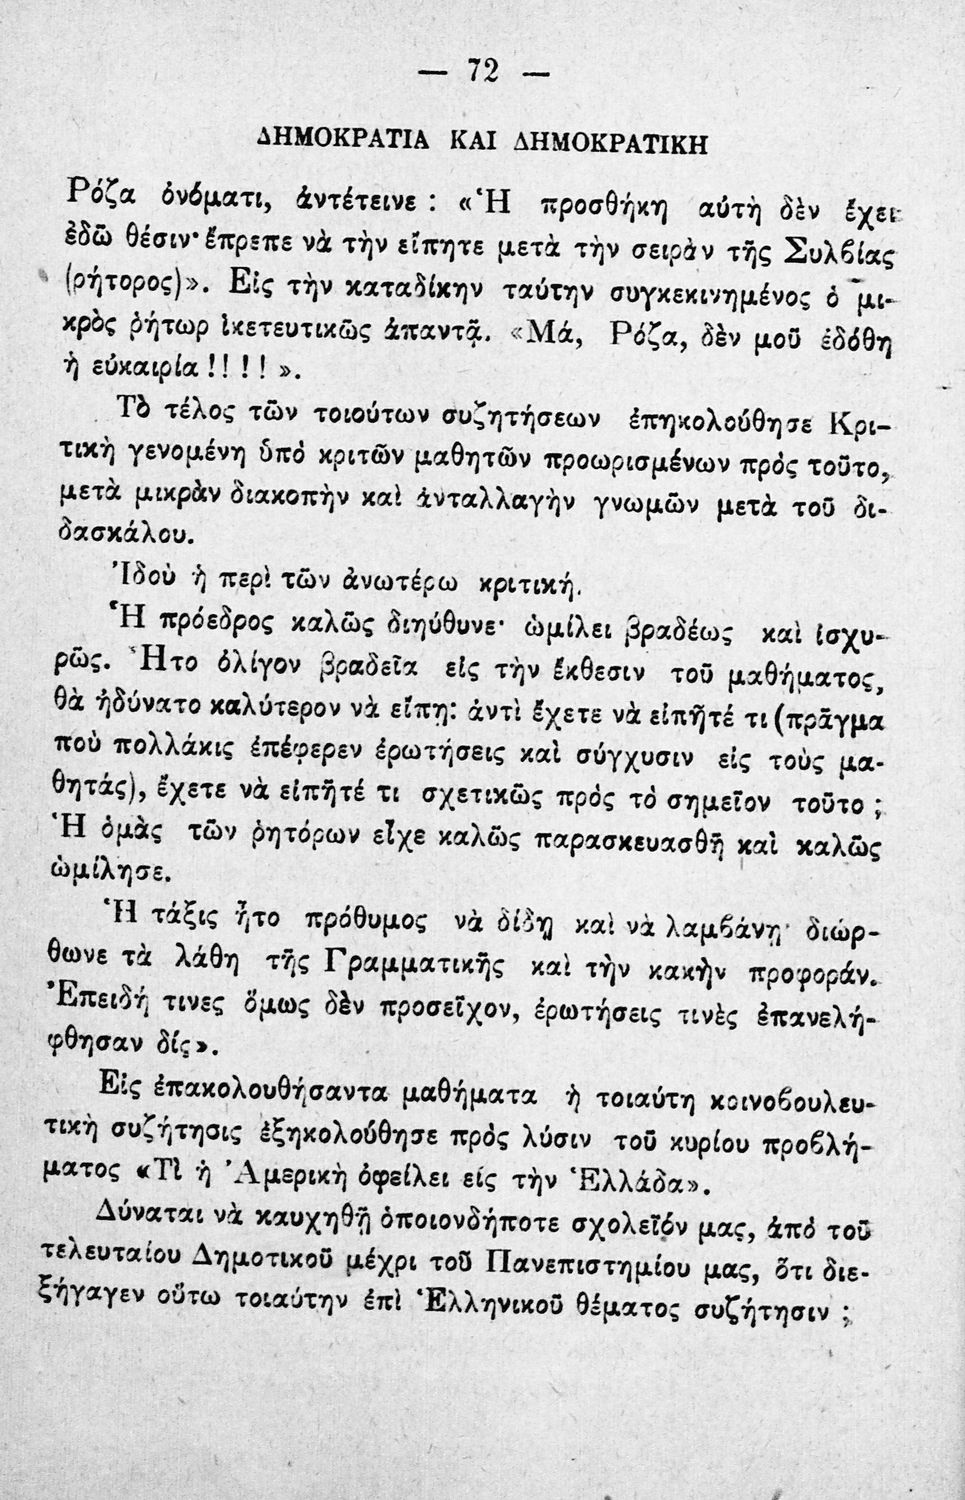 — 72 —
ΔΗΜΟΚΡΑΤΙΑ ΚΑΙ ΔΗΜΟΚΡΑΤΙΚΗ
Ρόζα ὀνόματι, ἀντέτεινε : «Ἡ προσθήκη αὐτὴ δὲν ἔχει
ἐδῶ θέσιν· ἔπρεπε νὰ τὴν εἴπητε μετὰ τὴν σειρὰν τῆς Συλβίας
(ρήτορος)». Εἰς τὴν καταδίκην ταύτην συγκεκινημένος ὁ μι-
κρὸς ῥήτωρ ἱκετευτικῶς ἀπαντᾷ. «Μά, Ρόζα, δὲν μοῦ ἐδόθη
ἡ εὐκαιρία !! !! ».
Τὸ τέλος τῶν τοιούτων συζητήσεων ἐπηκολούθησε Κρι-
τικὴ γενομένη ὑπὸ κριτῶν μαθητῶν προωρισμένων πρὸς τοῦτο,
μετὰ μικρὰν διακοπὴν καὶ ἀνταλλαγὴν γνωμῶν μετὰ τοῦ δι-
δασκάλου.
Ἰδοὺ ἡ περὶ τῶν ἀνωτέρω κριτική.
Ἡ πρόεδρος καλῶς διηύθυνε· ὡμίλει βραδέως καὶ ἰσχυ-
ρῶς. Ἦτο ὀλίγον βραδεῖα εἰς τὴν ἔκθεσιν τοῦ μαθήματος,
θὰ ἠδύνατο καλύτερον νὰ εἴπῃ: ἀντὶ ἔχετε νὰ εἰπῆτέ τι (πρᾶγμα
ποὺ πολλάκις ἐπέφερεν ἐρωτήσεις καὶ σύγχυσιν εἰς τοὺς μα-
θητάς), ἔχετε νὰ εἰπῆτέ τι σχετικῶς πρὸς τὸ σημεῖον τοῦτο ;
Ἡ ὁμὰς τῶν ῥητόρων εἶχε καλῶς παρασκευασθῆ καὶ καλῶς
ὡμίλησε.
Ἡ τάξις ἦτο πρόθυμος νὰ δίδῃ καὶ νὰ λαμβάνῃ· διώρ-
θωνε τὰ λάθη τῆς Γραμματικῆς καὶ τὴν κακὴν προφοράν.
Ἐπειδή τινες ὅμως δὲν προσεῖχον, ἐρωτήσεις τινὲς ἐπανελή-
φθησαν δίς».
Εἰς ἐπακολουθήσαντα μαθήματα ἡ τοιαύτη κοινοβουλευ-
τικὴ συζήτησις ἐξηκολούθησε πρὸς λύσιν τοῦ κυρίου προβλή-
ματος «Τὶ ἡ Ἀμερικὴ ὀφείλει εἰς τὴν Ἑλλάδα».
Δύναται νὰ καυχηθῇ ὁποιονδήποτε σχολεῖόν μας, ἀπὸ τοῦ
τελευταίου Δημοτικοῦ μέχρι τοῦ Πανεπιστημίου μας, ὅτι διε-
ξήγαγεν οὕτω τοιαύτην ἐπὶ Ἑλληνικοῦ θέματος συζήτησιν ;